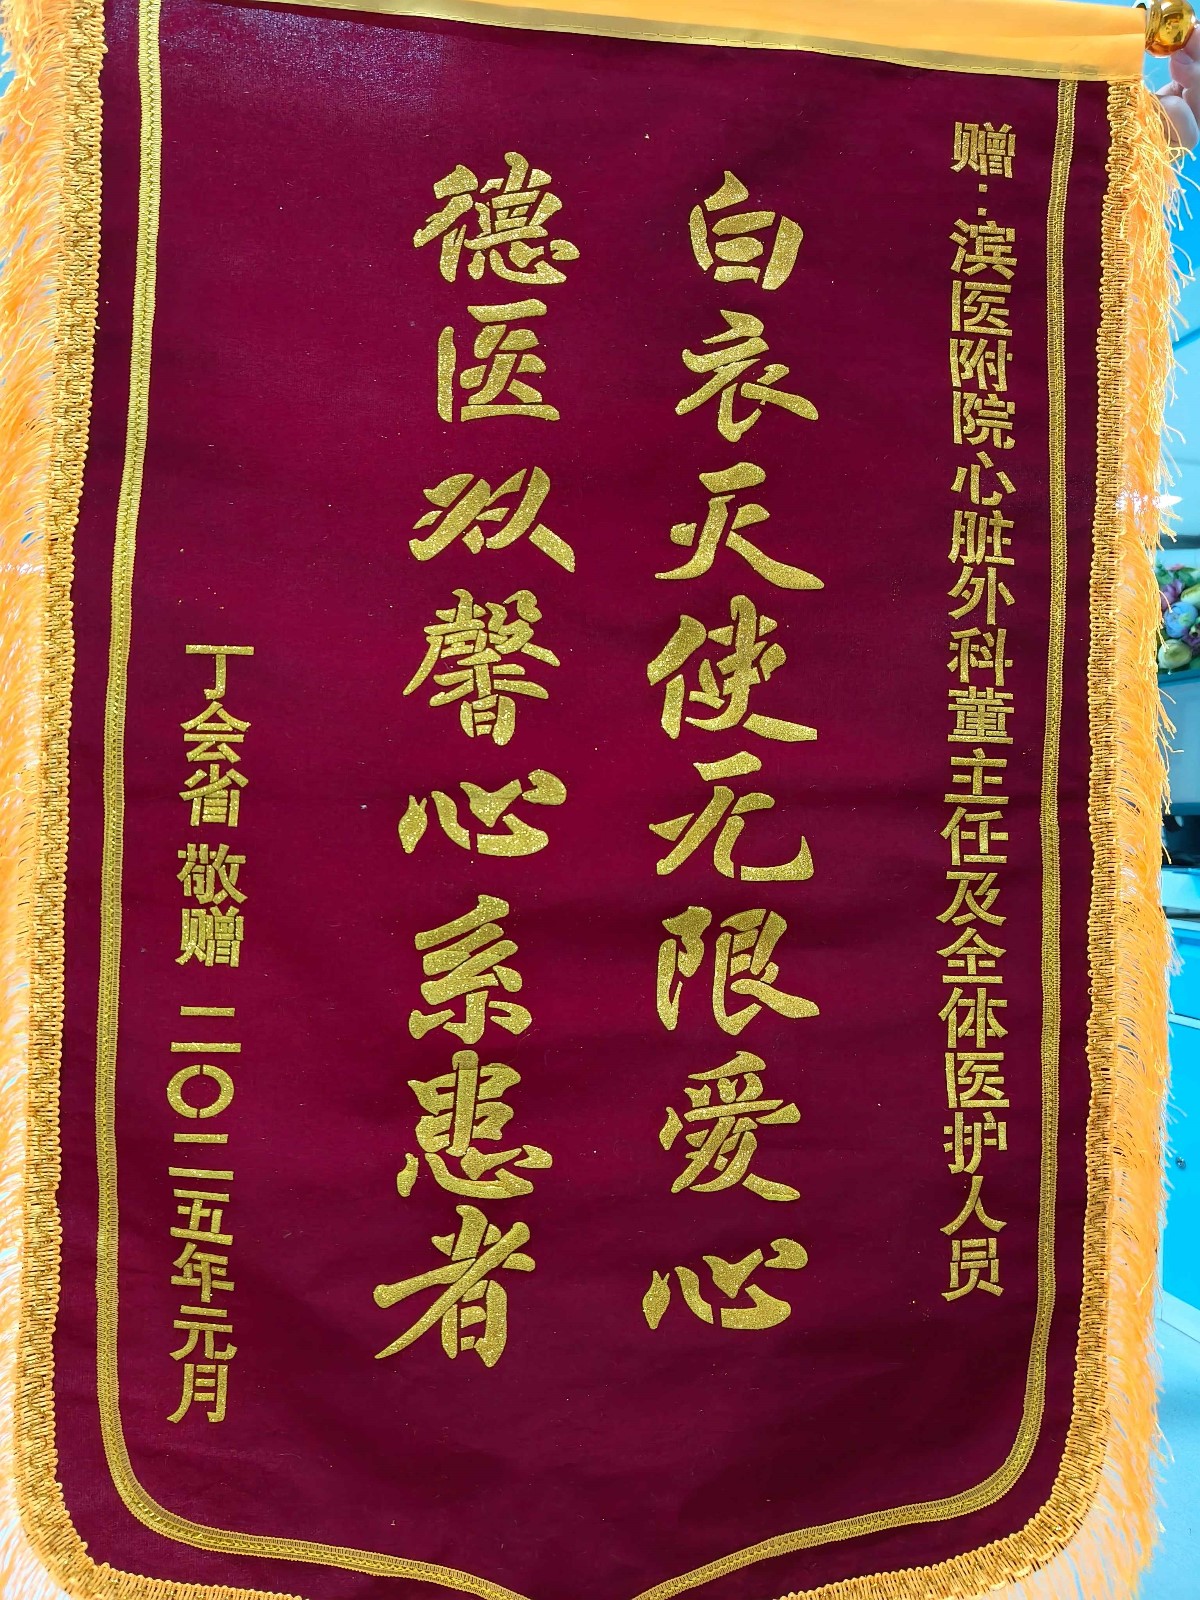 赠:滨医附院心脏外科董主任及全体医护人员
白衣天使无限爱心
德医双馨心系患者
丁会省 敬赠 二〇二五年元月